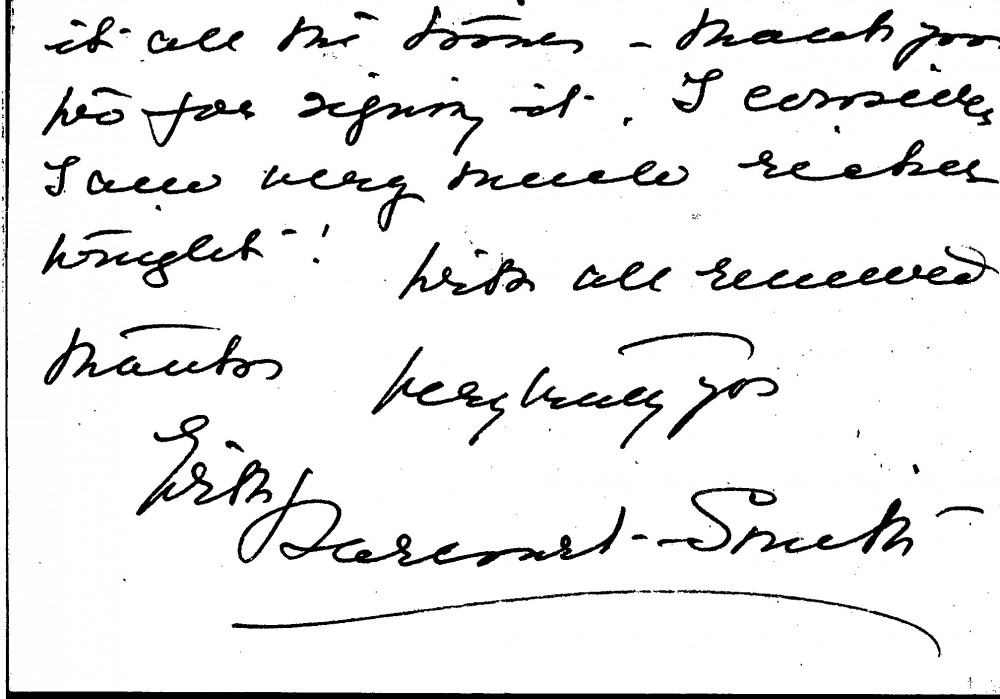 it all the time - thank you
too for signing it. I consider
I am very much richer
tonight!
With all renewed
thanks
very truly yrs
Harcourt-Smith